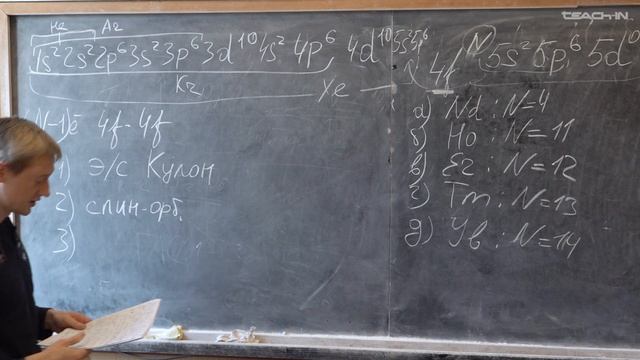 TEACH-IN
Ne Ar
1s² 2s² 2p⁶ 3s² 3p⁶ 3d¹⁰ 4s² 4p⁶ 4d¹⁰ 5s² 5p⁶
Kr Xe
4f N 5s² 5p⁶ 5d⁰
N-1) ē 4f-4f
1) э/с Кулон
2) спин-орб.
3)
а) Nd : N=4
б) Ho : N=11
в) Er : N=12
г) Tm : N=13
д) Yb : N=14